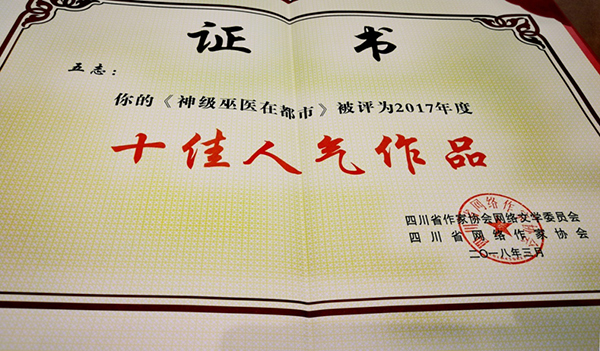 证书
五志：
你的《神级巫医在都市》被评为2017年度
十佳人气作品
四川省作家协会网络文学委员会
四川省网络作家协会
二〇一八年三月